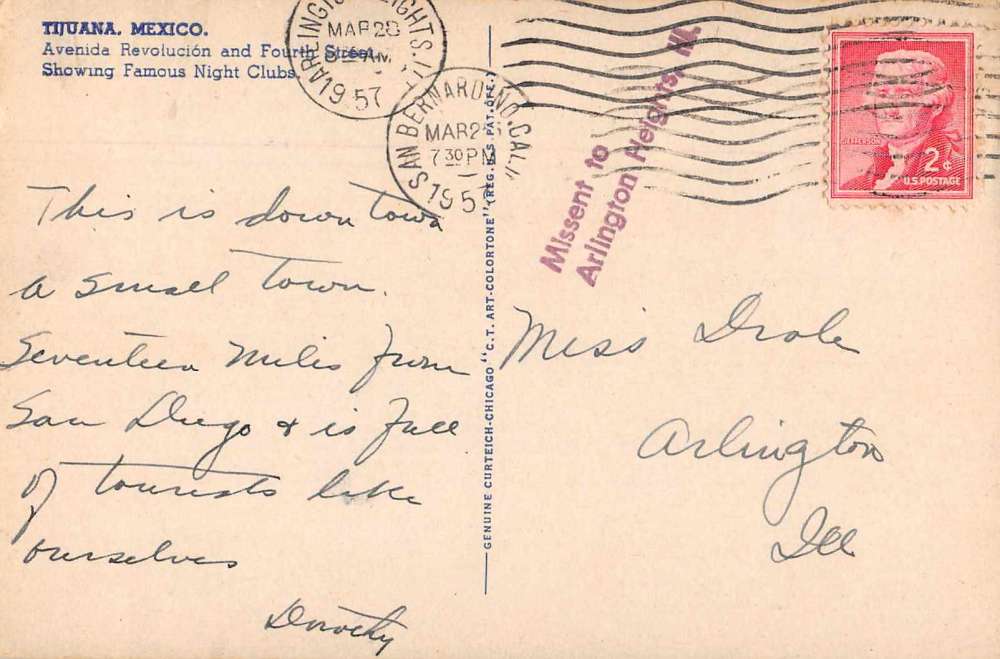 TIJUANA, MEXICO.
Avenida Revolución and Fourth Street,
Showing Famous Night Clubs.
ARLINGTON HEIGHTS, ILL.
MAR 28
AM
1957
SAN BERNARDINO, CALIF.
MAR 26
7 30 PM
195
Missent to
Arlington Heights, Ill.
JEFFERSON
2¢
U.S. POSTAGE
This is down town
a small town.
Seventeen miles from
San Diego & is full
of tourists like
ourselves
Dorothy
GENUINE CURTEICH-CHICAGO "C.T. ART-COLORTONE" (REG. U.S. PAT. OFF.)
Miss
Arlington
Ill